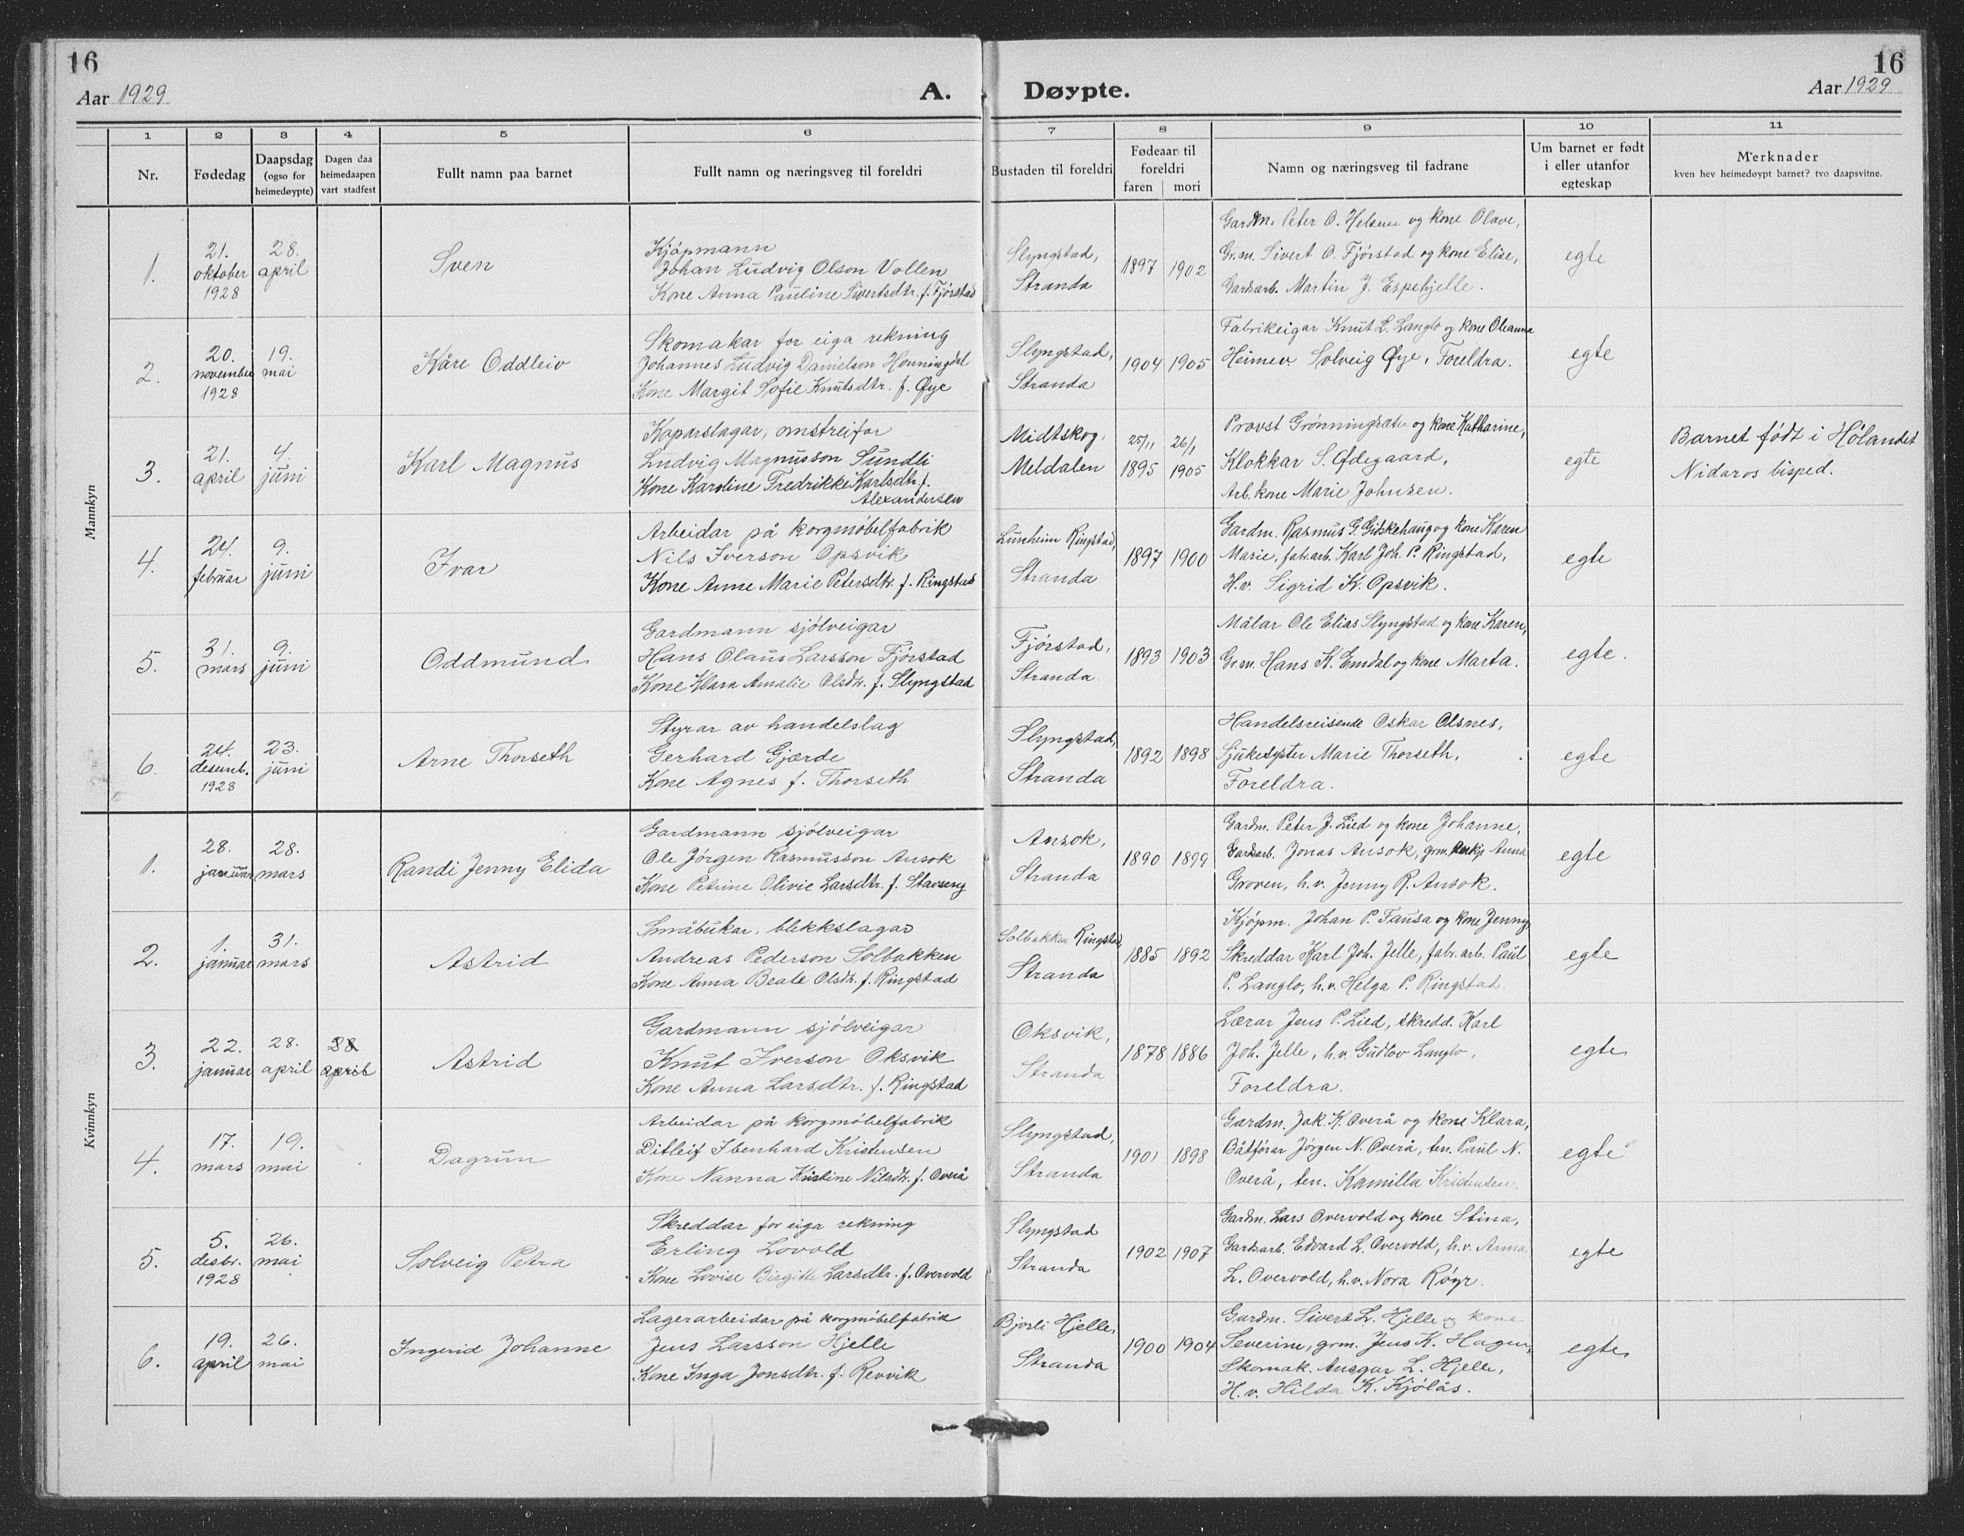 16
Aar 1929
A. Døypte.
16
Aar 1929
1 2 3 4 5 6 7 8 9 10 11
Nr.
Fødedag
Daapsdag
(ogso for
heimedøypte)
Dagen daa
heimedaapen
vart stadfest
Fullt namn paa barnet
Fullt namn og næringsveg til foreldri
Bustaden til foreldri
Fødeaar til
foreldri
faren mori
Namn og næringsveg til fadrane
Um barnet er født
i eller utanfor
egteskap
Merknader
kven hev heimedøypt barnet? tvo daapsvitne.
Mannkyn
1.
21.
oktober
1928
28.
april
Sven
Kjøpmann
Johan Ludvig Olson Vollen
Kone Anna Pauline Sivertsdtr. f. Fjørstad
Slyngstad,
Stranda
1897 1902
Gardm. Peter O. Helsem og kone Olave,
Gr.m. Sivert O. Fjørstad og kone Elise,
Gardsarb. Martin J. Espehjelle.
egte
2.
20.
november
1928
19.
mai
Kåre Oddleiv
Skomakar for eiga rekning
Johannes Ludvig Danielson Honningdal
Kone Margit Sofie Knutsdtr. f. Øye
Slyngstad,
Stranda
1904 1905
Fabrikeigar Knut L. Langlo og kone Oleanna
Heimev. Solveig Øye, Foreldra.
egte
3.
21.
april
4.
juni
Karl Magnus
Koparslagar, omstreifar
Ludvig Magnusson Sundli
Kone Karoline Fredrikke Karlsdtr. f.
Alexandersen
Midtskog,
Meldalen
25/11 26/1
1895 1905
Provst Grønningsæter og kone Katharine,
Klokkar S. Ødegaard,
Arb. kone Marie Johnsen.
egte
Barnet født i Hølandet
Nidaros bisped.
4.
24.
februar
9.
juni
Ivar
Arbeidar på korgmøbelfabrik
Nils Iverson Opsvik
Kone Anne Marie Petersdtr. f. Ringstad
Lunheim Ringstad,
Stranda
1897 1900
Gardm. Rasmus G. Gitskehaug og kone Karen
Marie, fab.arb. Karl Joh. P. Ringstad,
H.v. Sigrid K. Opsvik.
egte
5.
31.
mars
9.
juni
Oddmund
Gardmann sjölveigar
Hans Olaus Larsson Fjørstad
Kone Klara Amalie Olsdtr. f. Slyngstad
Fjørstad,
Stranda.
1893 1903
Målar Ole Elias Slyngstad og kone Karen,
Gr.m. Hans K. Emdal og kone Marta.
egte.
6.
24.
desemb.
1928
23.
juni
Arne Thorseth
Styrar av handelslag
Gerhard Gjærde
Kone Agnes f. Thorseth
Slyngstad,
Stranda
1892 1898
Handelsreisende Oskar Olsnes,
Sjukesyster Marie Thorseth,
Foreldra.
egte
Kvinnkyn
1.
28.
januar
28.
mars
Randi Jenny Elida
Gardmann sjölveigar
Ole Jørgen Rasmusson Ansok
Kone Petrine Olivie Larsdtr. f. Stavseng
Ansok,
Stranda
1890 1899
Gardm. Peter J. Lied og kone Johanne,
Gardsarb. Jonas Ansok, grm. Anna
Groven, h.v. Jenny R. Ansok.
egte
2.
1.
januar
31.
mars
Astrid
Småbrukar, blekkslagar
Andreas Pederson Solbakken
Kone Anna Beate Olsdtr. f. Ringstad
Solbakken Ringstad,
Stranda
1885 1892
Kjøpm. Johan P. Fausa og kone Jenny,
Skreddar Karl Joh. Jelle, fabr.arb. Paul
P. Langlo, h.v. Helga P. Ringstad
egte
3.
22.
januar
28.
april
28
april
Astrid
Gardmann sjölveigar
Knut Iverson Oksvik
Kone Anna Larsdtr. f. Ringstad
Oksvik,
Stranda
1878 1886
Lærar Jens P. Lied, skredd. Karl
Joh. Jelle, h.v. Gudlov Langlo,
Foreldra.
egte
4.
17.
mars
19.
mai
Dagrun
Arbeidar på korgmøbelfabrik
Ditleif Ibenhard Kristensen
Kone Nanna Kristine Nilsdtr. f. Overå
Slyngstad,
Stranda
1901 1898
Gardm. Jak. K. Overå og kone Klara,
Båtförar Jørgen N. Overå, ten. Paul N.
Overå, ten. Kamilla Kristensen.
egte
5.
5.
desbr.
1928
26.
mai
Solveig Petra
Skreddar for eiga rekning
Erling Lovold
Kone Lovise Birgitte Larsdtr. f. Overvold
Slyngstad
Stranda
1902 1907
Gardm. Lars Overvold og kone Stina,
Gardsarb. Edvard L. Overvold, h.v. Anna
L. Overvold, h.v. Nora Røyr.
egte
6.
19.
april
26.
mai
Ingerid Johanne
Lagerarbeidar på korgmøbelfabrik
Jens Larsson Hjelle
Kone Inga Jonsdtr. f. Revvik
Bjorli Hjelle,
Stranda
1900 1904
Gardm. Sivert L. Hjelle og kone
Severine, grm. Jens K. Hagen,
Skomak. Ansgar L. Hjelle,
H.v. Hilda K. Kjölås.
egte